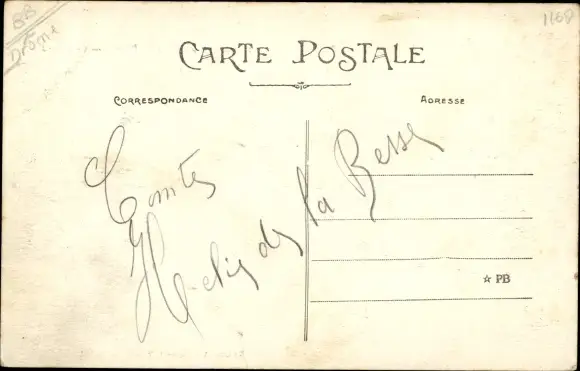 BB
Drôme
1168
CARTE POSTALE
CORRESPONDANCE
ADRESSE
Comte
Helie de la Besse
☆ PB